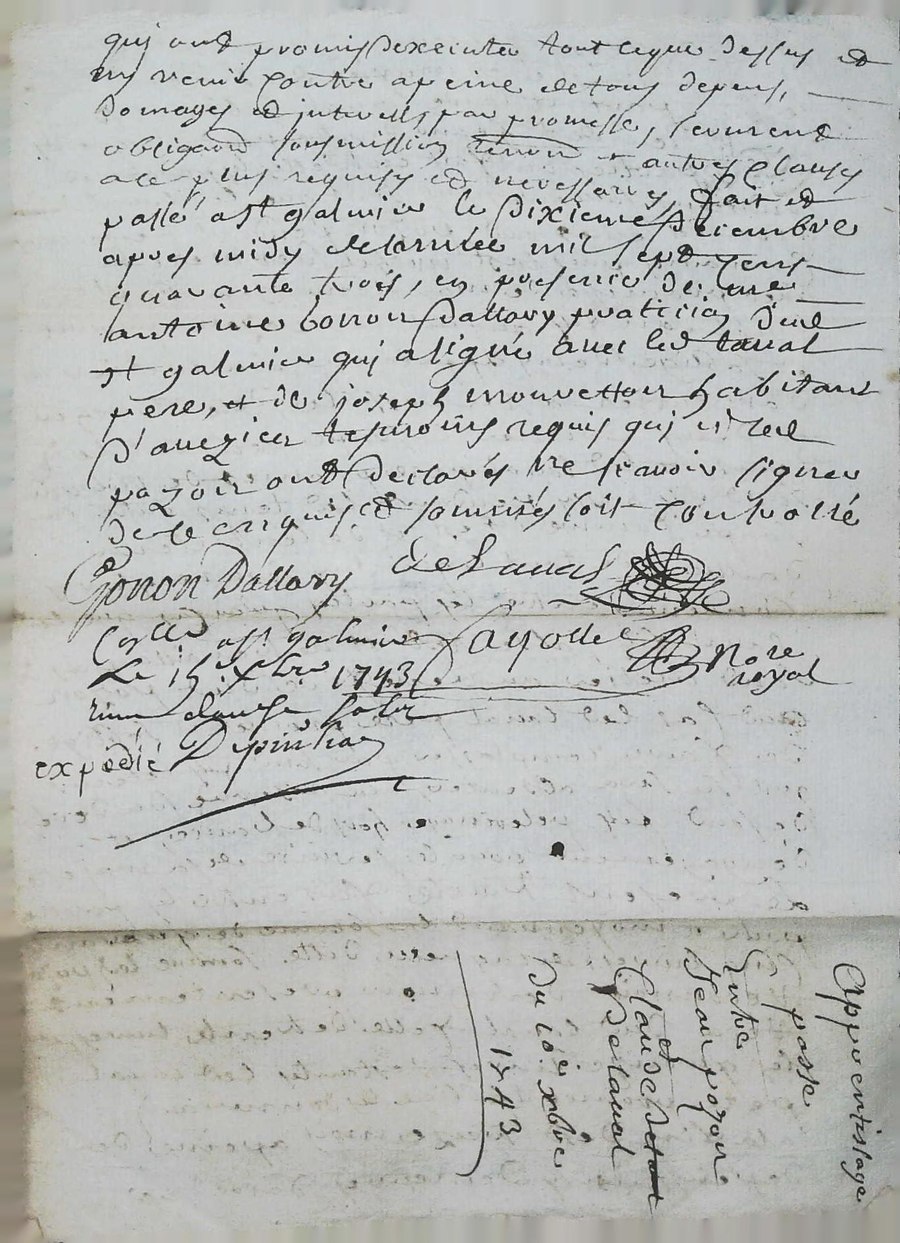 qui ont promis dexecuter tout ceque dessus et
en venir contre apeine detous depens,
domages et interests, par promesse, serment
obligaon soumission renon et autres clauses
ace plus requises et necessaires, fait et
passé a st galmier le dixieme decembre
apres midy delannée mil sept cens
quarante trois, en presence de me
antoine Gonon Dallary praticien dud
st galmier qui asigné avec led laval
pere, et de joseph habitant
d'aveizieu temoins requis qui et led
pozoir ont declarés ne scavoir signer
dece enquis et sommés soit controllé
Gonon Dallary deLaval
Collé a st galmier Jayolle Nore
Le 15e xbre 1743 royal
reçu douze sols
expedié Depinhac
Apprentissage
passé
Entre
Jean pozoir
et
Claude
Delaval
Du 10e xbre
1743